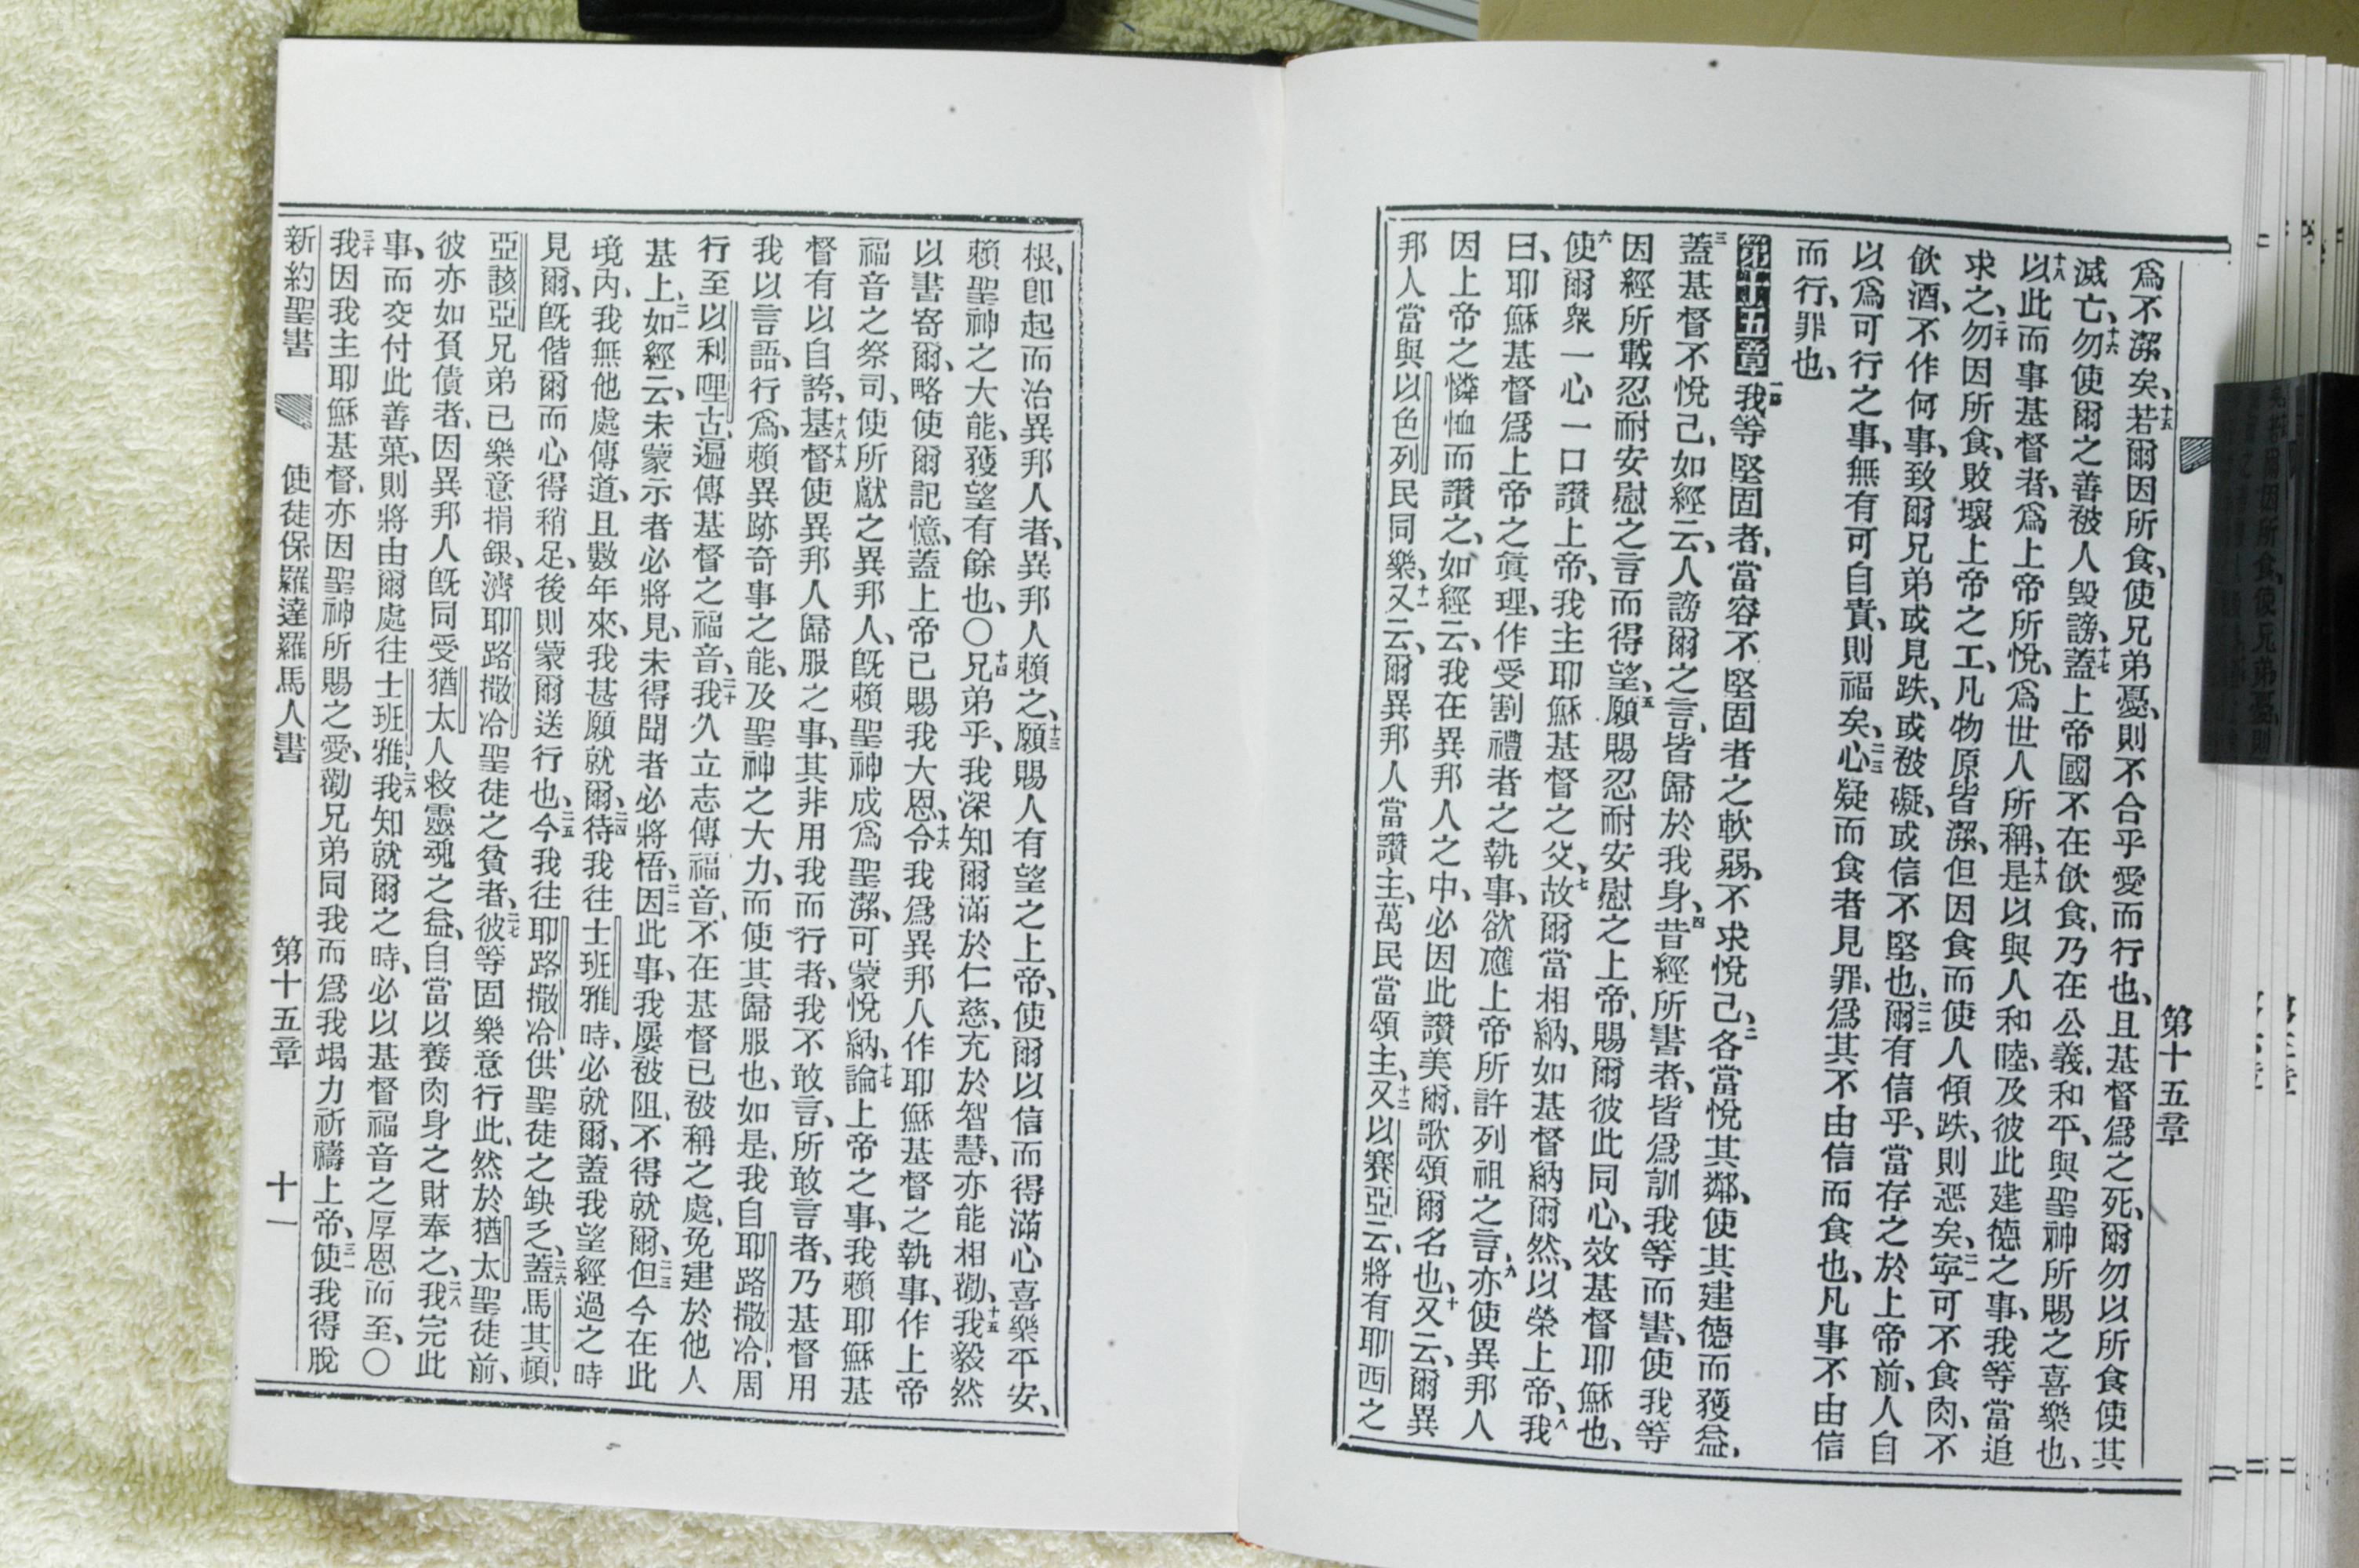 第十五章
爲不潔矣、十五若爾因所食、使兄弟憂、則不合乎愛而行也、且基督爲之死、爾勿以所食使其
滅亡、十六勿使爾之善被人毀謗、十七蓋上帝國不在飲食、乃在公義、和平、與聖神所賜之喜樂也、
十八以此而事基督者、爲上帝所悅、爲世人所稱、十九是以與人和睦、及彼此建德之事、我等當追
求之、二十勿因所食、敗壞上帝之工、凡物原皆潔、但因食而使人傾跌、則惡矣、二一寧可不食肉、不
飲酒、不作何事、致爾兄弟或見跌、或被礙、或信不堅也、二二爾有信乎、當存之於上帝前、人自
以爲可行之事、無有可自責、則福矣、二三心疑而食者見罪、爲其不由信而食也、凡事不由信
而行、罪也、
第十五章 一我等堅固者、當容不堅固者之軟弱、不求悅己、二各當悅其鄰、使其建德而獲益、
三蓋基督不悅己、如經云、人謗爾之言、皆歸於我身、四昔經所書者、皆爲訓我等而書、使我等
因經所載忍耐安慰之言而得望、五願賜忍耐安慰之上帝、賜爾彼此同心、效基督耶穌也、
六使爾衆一心一口讚上帝、我主耶穌基督之父、七故爾當相納、如基督納爾然、以榮上帝、八我
曰、耶穌基督爲上帝之眞理、作受割禮者之執事、欲應上帝所許列祖之言、九亦使異邦人
因上帝之憐恤而讚之、如經云、我在異邦人之中、必因此讚美爾、歌頌爾名也、十又云、爾異
邦人當與以色列民同樂、十一又云、爾異邦人當讚主、萬民當頌主、十二又以賽亞云、將有耶西之
根、卽起而治異邦人者、異邦人賴之、十三願賜人有望之上帝、使爾以信而得滿心喜樂平安、
賴聖神之大能、獲望有餘也、〇十四兄弟乎、我深知爾滿於仁慈、充於智慧、亦能相勸、十五我毅然
以書寄爾、略使爾記憶、蓋上帝已賜我大恩、十六令我爲異邦人作耶穌基督之執事、作上帝
福音之祭司、使所獻之異邦人、旣賴聖神成爲聖潔、可蒙悅納、十七論上帝之事、我賴耶穌基
督有以自誇、十八十九基督使異邦人歸服之事、其非用我而行者、我不敢言、所敢言者、乃基督用
我以言語、行爲、賴異跡奇事之能、及聖神之大力、而使其歸服也、如是、我自耶路撒冷、周
行至以利哩古、遍傳基督之福音、二十我久立志傳福音、不在基督已被稱之處、免建於他人
基上、二一如經云、未蒙示者必將見、未得聞者必將悟、二二因此事、我屢被阻、不得就爾、二三但今在此
境內、我無他處傳道、且數年來、我甚願就爾、二四待我往士班雅時、必就爾、蓋我望經過之時
見爾、旣偕爾而心得稍足、後則蒙爾送行也、二五今我往耶路撒冷、供聖徒之缺乏、二六蓋馬其頓、
亞該亞兄弟已樂意捐銀、濟耶路撒冷聖徒之貧者、二七彼等固樂意行此、然於猶太聖徒前、
彼亦如負債者、因異邦人旣同受猶太人救靈魂之益、自當以養肉身之財奉之、二八我完此
事、而交付此善菓、則將由爾處往士班雅、二九我知就爾之時、必以基督福音之厚恩而至、〇
三十我因我主耶穌基督、亦因聖神所賜之愛、勸兄弟同我而爲我竭力祈禱上帝、三一使我得脫
新約聖書 使徒保羅達羅馬人書 第十五章 十一